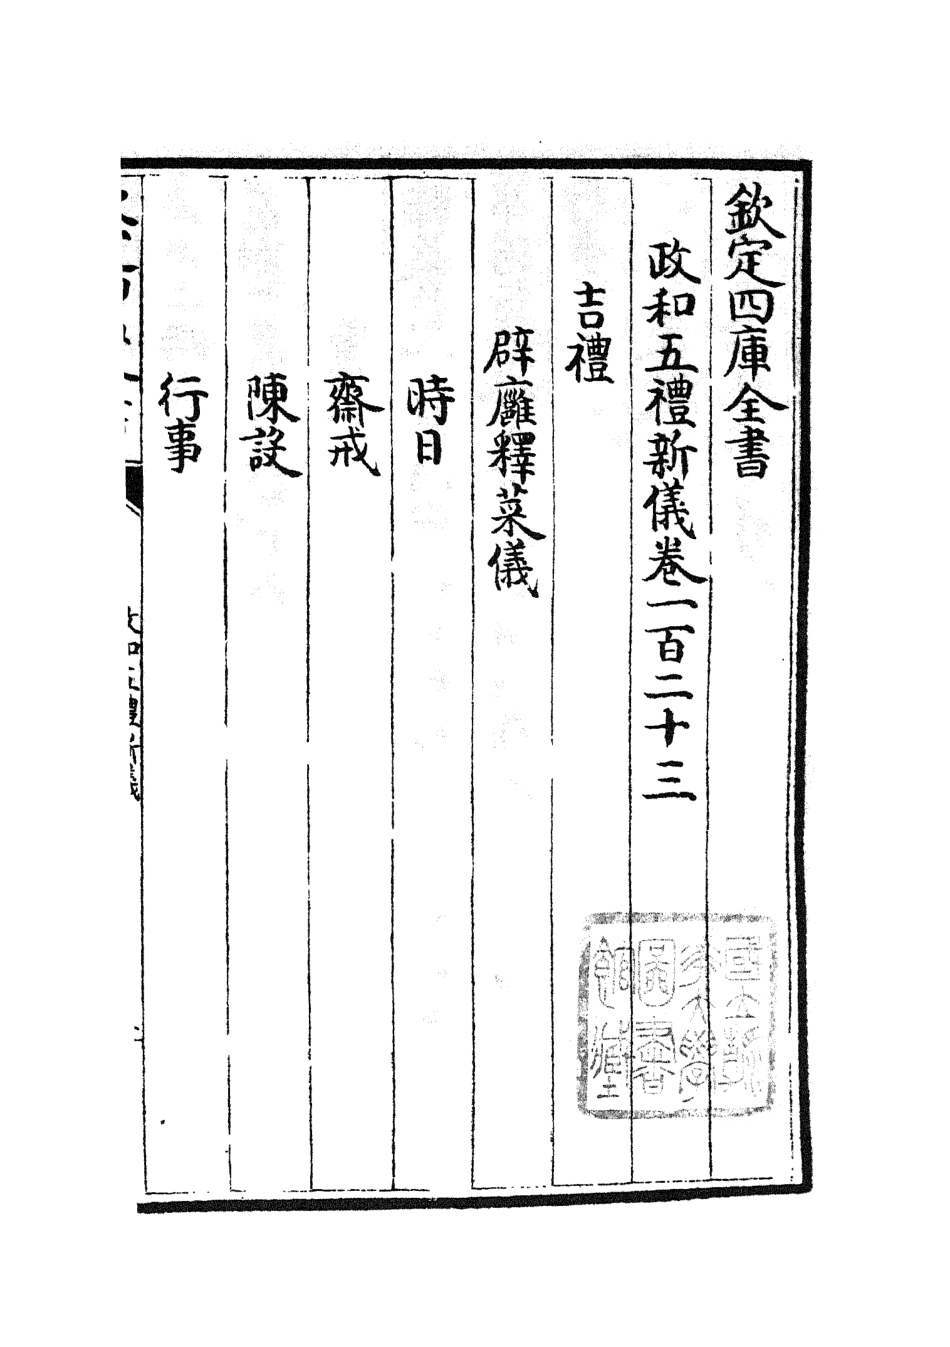 欽定四庫全書
政和五禮新儀卷一百二十三
吉禮
辟廱釋菜儀
時日
齋戒
陳設
行事
政和五禮新儀
國立浙江大學圖書館藏